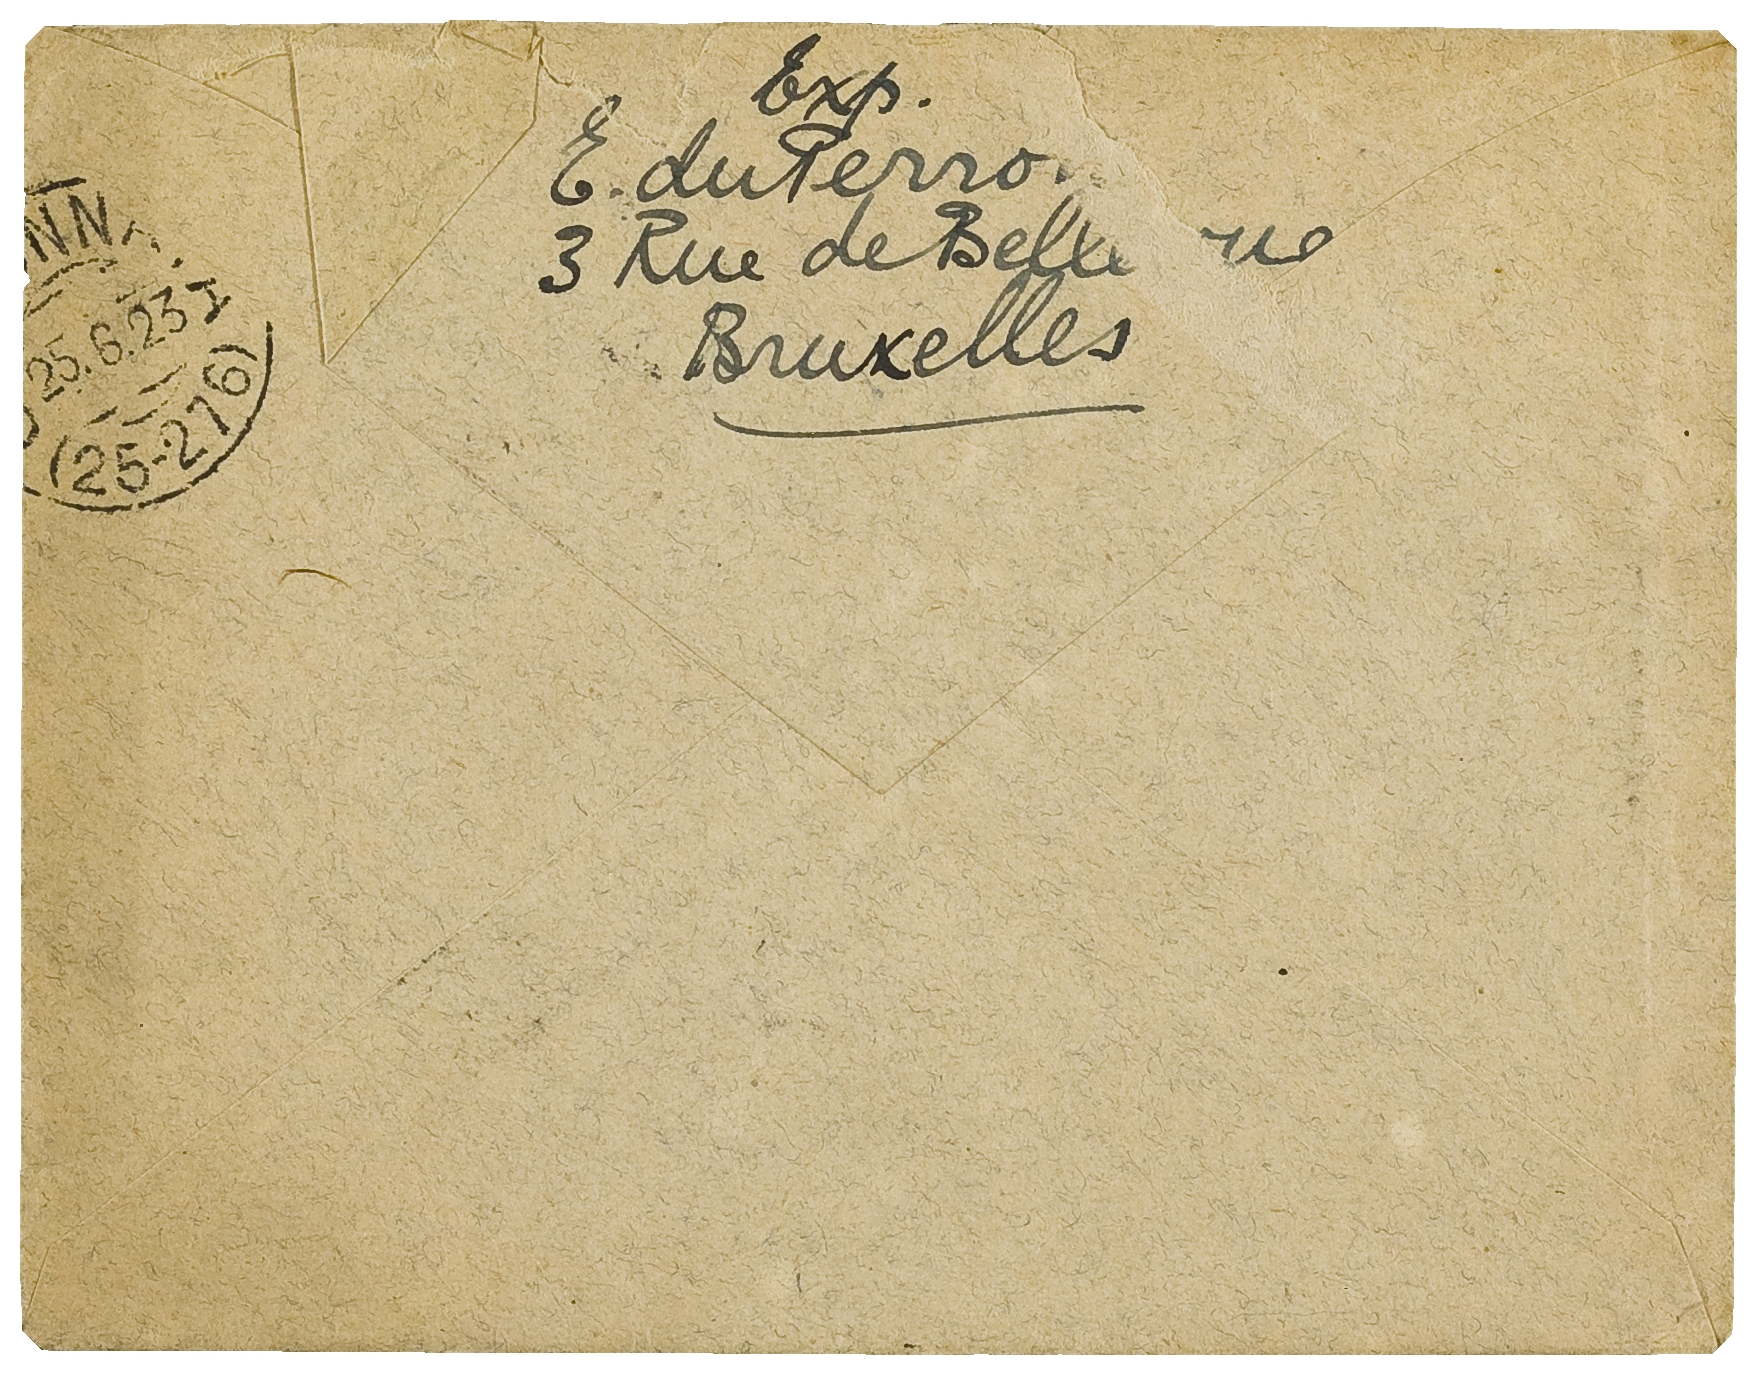 Exp.
E. du Perro
3 Rue de Belle ue
Bruxelles
NNA
25.6.23 I
(25-276)